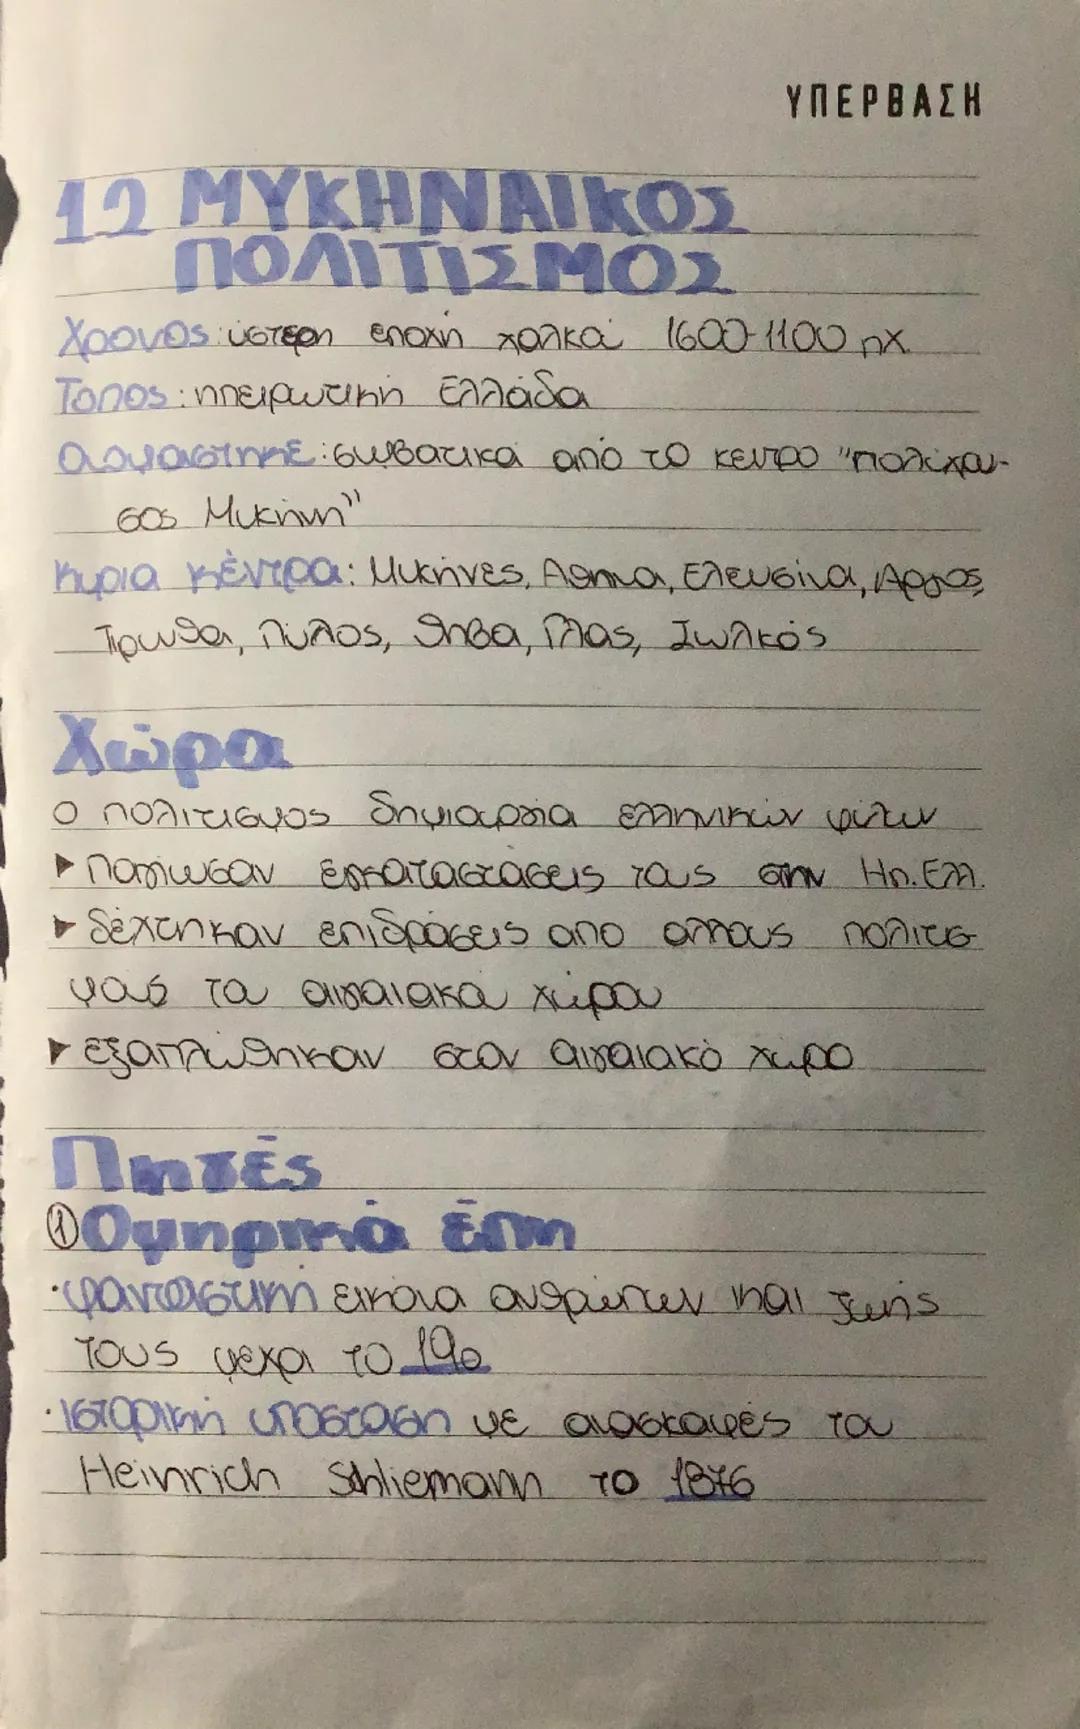 ΥΠΕΡΒΑΣΗ
12 ΜΥΚΗΝΑΙΚΟΣ
ΠΟΛΙΤΙΣΜΟΣ
Χρονος: ύστερη εποχή χαλκού 1600-1100 πΧ
Τοπος: ηπειρωτική Ελλάδα
συμβατικά από το κεντρο "πολύχρυ-
σος Μυκήνη"
Κυρια κέντρα: Μυκήνες, Αθηνα, Ελευσίνα, Αργος,
Τιρυνθα, Πύλος, Θηβα, Γλας, Ιωλκός
Χώρα
Ο πολιτισμος δημιουργία ελληνικών φύλων
▸ Παγίωσαν εγκαταστάσεις τους στην Ηπ. Ελλ.
▸ δέχτηκαν επιδράσεις απο αλλους πολιτισ
μούς του αιγαιακου χώρου
▸ εξαπλώθηκαν στον αιγαιακό χώρο
Πηγές
① Ομηρικά έπη
· φανταστική εικόνα ανθρώπων και ζωής
τους μεχρι το 19ο
· Ιστορική υπόσταση με ανασκαφές του
Heinrich Schliemann το 1876